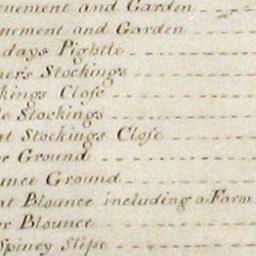 enement and Garden
nement and Garden
days Pightle
ner's Stockings
kings Close
e Stockings
at Stockings Close
r Ground
unce Ground
at Blounce including a Farm
er Blounce
Spiney Slipe